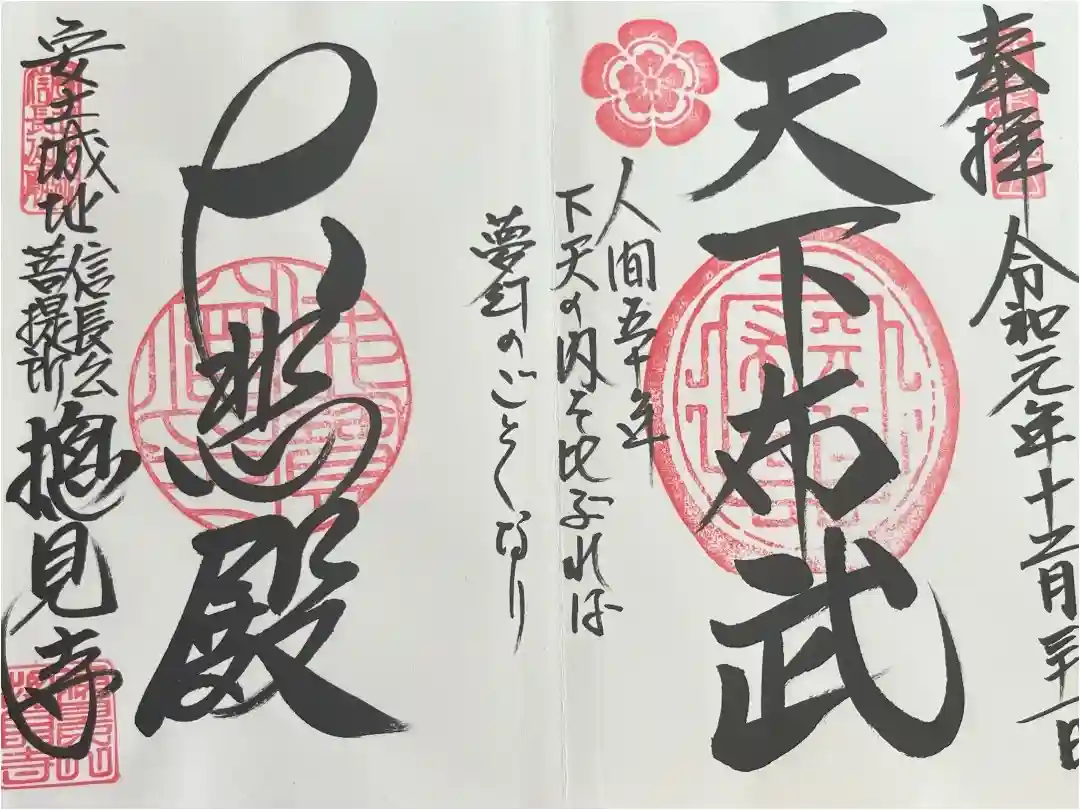 奉拝
令和元年十二月三十一日
天下布武
人間五十年
下天の内を比ぶれば
夢幻のごとくなり
大悲殿
安土城址
信長公
菩提所
摠見寺